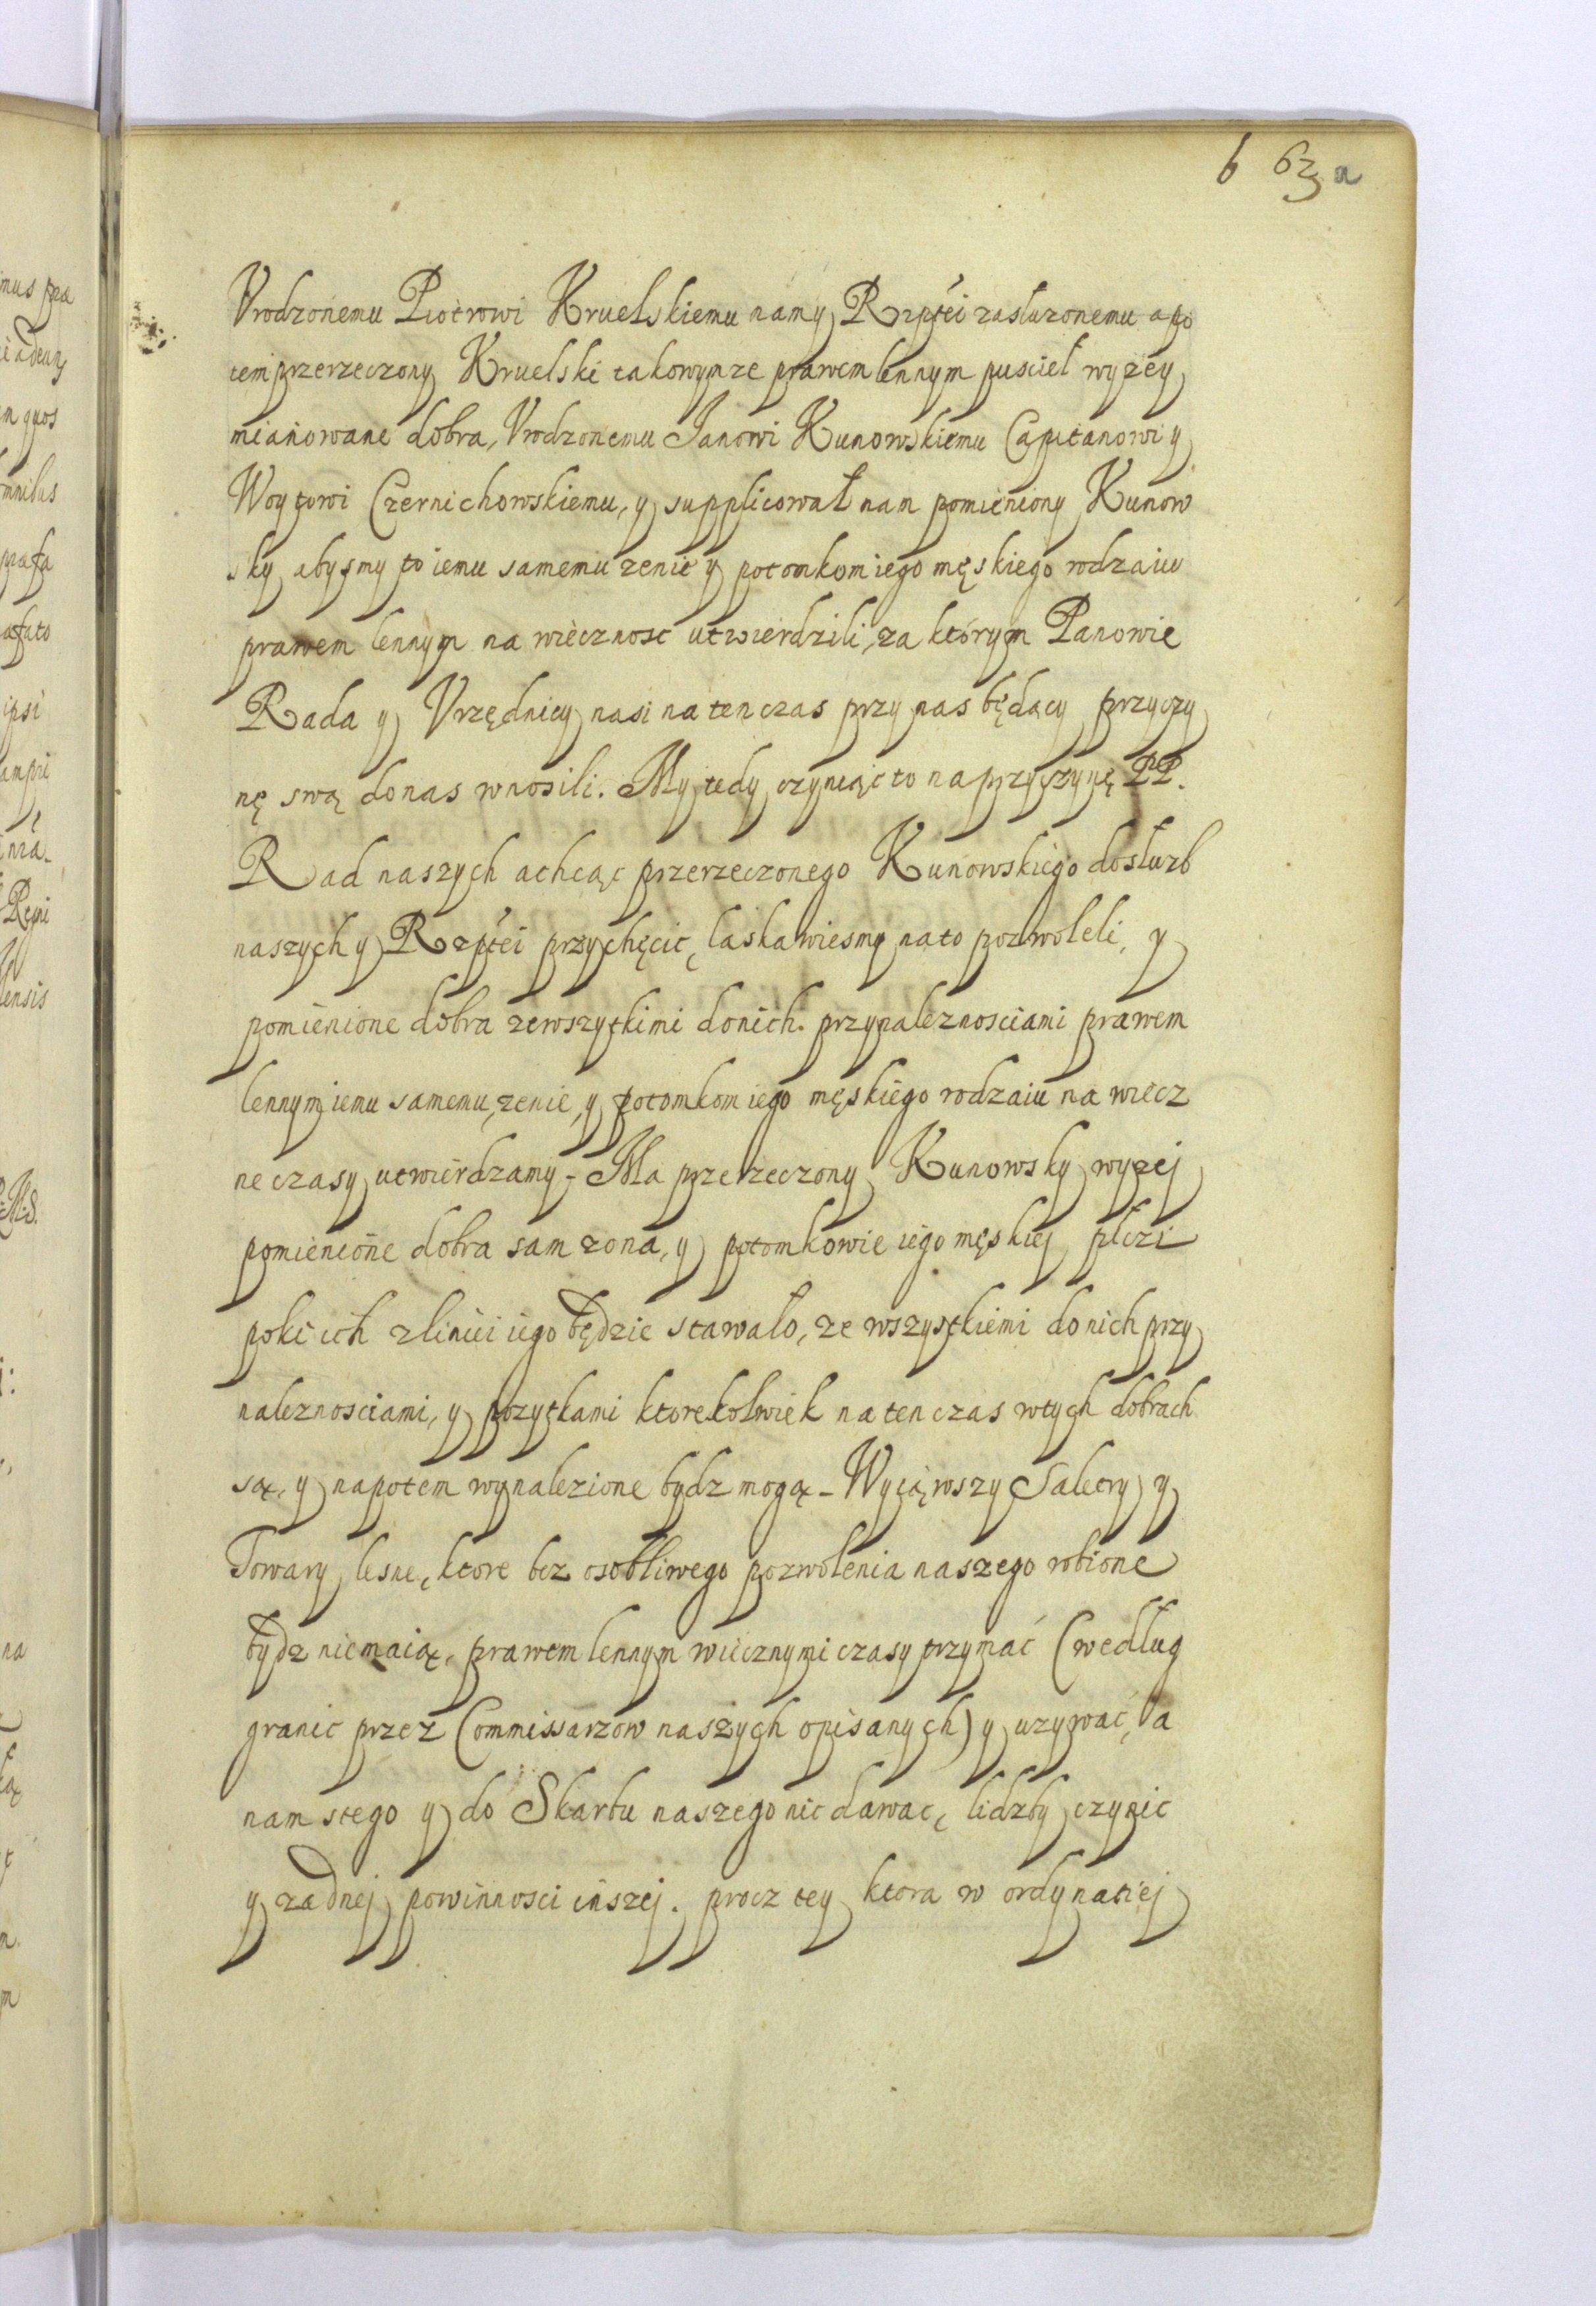 6 63 a
Vrodzonemu Piotrowi Kruelskiemu namy Rzptei zasluzonemu a po
tem przerzeczony Kruelski takowymze prawem lennym puscieł wyzey
mianowane dobra, Vrodzonemu Janowi Kunowskiemu Capitanowi y
Woytowi Czernichowskiemu, y supplicował nam pomieniony Kunow
sky abysmy to iemu samemu zenie y potomkom iego męskiego rodzaiu
prawem lennym na wiecznosc utwierdzili, za którym Panowie
Rada y Vrzędnicy nasi na ten czas przy nas będący przyczy
nę swą do nas wnosili. My tedy czyniąc to na przyczynę PP.
Rad naszych a chcąc przerzeczonego Kunowskiego do służb
naszych y Rzptei przychęcic, laskawiesmy na to pozwoleli, y
pomienione dobra zewszytkimi do nich przynaleznosciami prawem
lennym iemu samemu, zenie, y potomkom iego męskiego rodzaiu na wiecz
ne czasy utwierdzamy - Ma przerzeczony Kunowsky wyzej
pomienione dobra sam zona, y potomkowie iego męskiej płczi
poki ich z liniei iego będzie stawało, ze wszystkiemi do nich przy
naleznosciami, y pozytkami ktorekolwiek na ten czas w tych dobrach
są, y napotem wynalezione bydz mogą - Wyiąwszy Saletry y
Towary lesne, ktore bez osobliwego pozwolenia naszego robione
bydz niemaią, prawem lennym wiecznymi czasy trzymać (według
granic przez Commissarzow naszych opisanych) y uzywać, a
nam stego y do Skarbu naszego nic dawac, lidzby czynic
y zadnej powinnosci inszej. procz tey ktora w ordynatiej